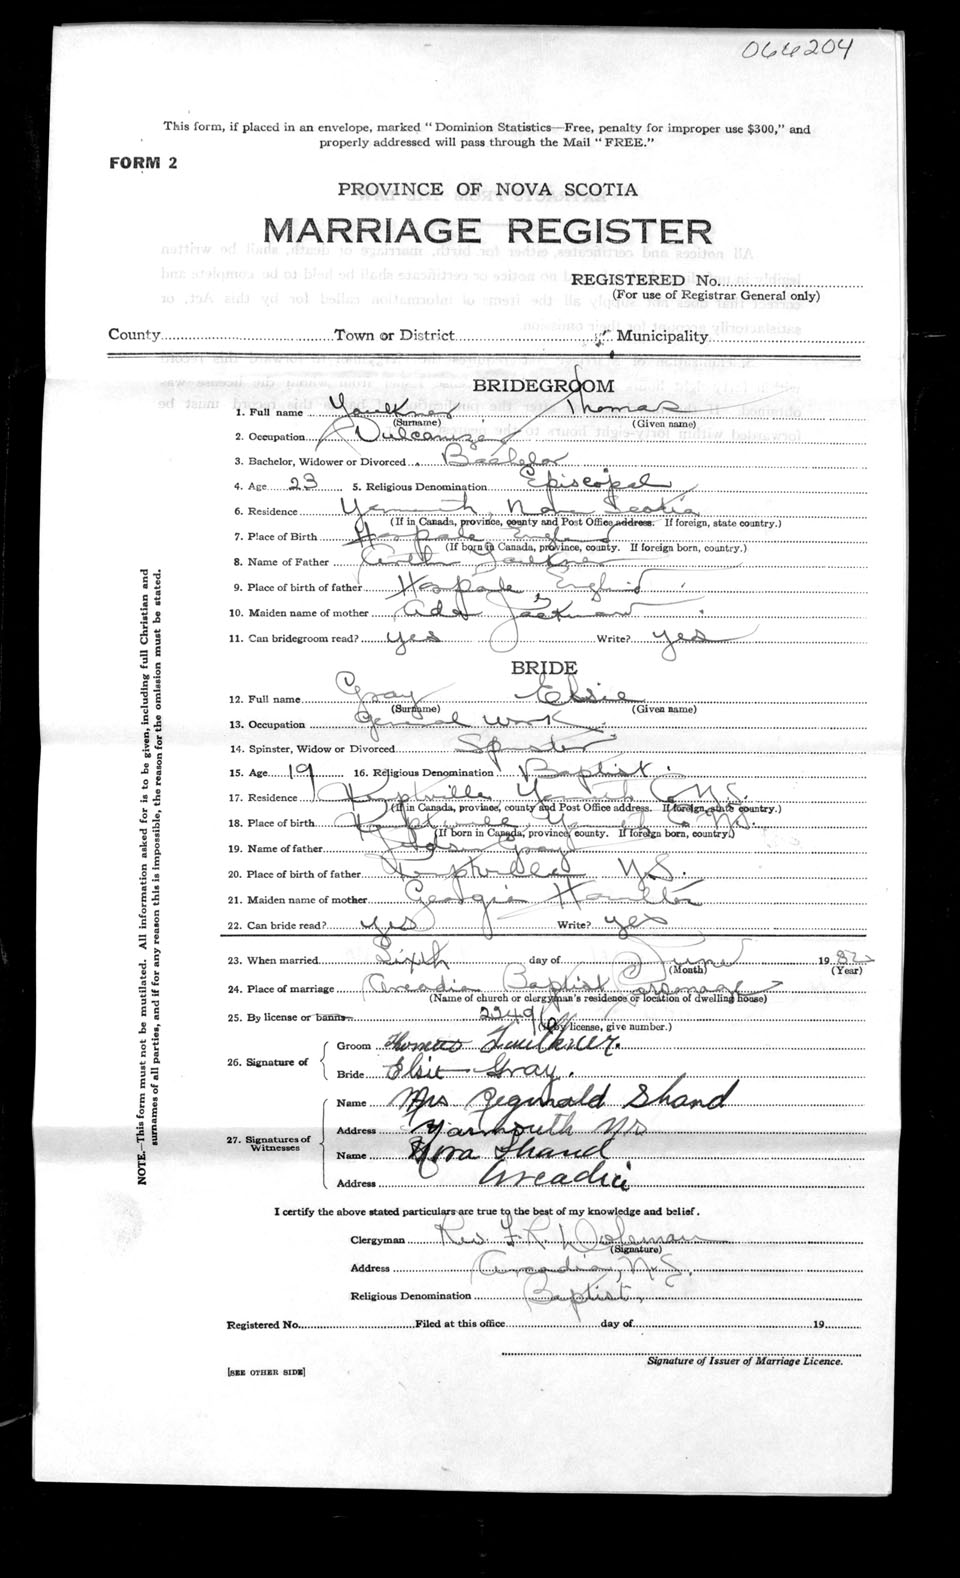 066204
This form, if placed in an envelope, marked "Dominion Statistics—Free, penalty for improper use $300," and
properly addressed will pass through the Mail "FREE."
FORM 2
PROVINCE OF NOVA SCOTIA
MARRIAGE REGISTER
REGISTERED No.
(For use of Registrar General only)
County Town or District Municipality
BRIDEGROOM
1. Full name Faulkner Thomas
(Surname) (Given name)
2. Occupation Vulcanizer
3. Bachelor, Widower or Divorced Bachelor
4. Age 23 5. Religious Denomination Episcopal
6. Residence Yarmouth, Nova Scotia
(If in Canada, province, county and Post Office address. If foreign, state country.)
7. Place of Birth England
(If born in Canada, province, county. If foreign born, country.)
8. Name of Father Faulkner
9. Place of birth of father England
10. Maiden name of mother Ada Jackman
11. Can bridegroom read? yes Write? yes
BRIDE
12. Full name Gray Elsie
(Surname) (Given name)
13. Occupation General work
14. Spinster, Widow or Divorced Spinster
15. Age 19 16. Religious Denomination Baptist
17. Residence Kemptville Yarmouth Co N.S.
(If in Canada, province, county and Post Office address. If foreign, state country.)
18. Place of birth Kemptville, Yarmouth Co N.S.
(If born in Canada, province, county. If foreign born, country.)
19. Name of father Gray
20. Place of birth of father Kemptville N.S.
21. Maiden name of mother Georgie Hamilton
22. Can bride read? yes Write? yes
23. When married Sixth day of June 1932
(Month) (Year)
24. Place of marriage Arcadia Baptist Parsonage
(Name of church or clergyman's residence or location of dwelling house)
25. By license or banns 2249
(If by license, give number.)
26. Signature of
Groom Thomas Faulkner.
Bride Elsie Gray.
27. Signatures of Witnesses
Name Mrs Reginald Shand
Address Yarmouth NS
Name Nora Shand
Address Arcadia
I certify the above stated particulars are true to the best of my knowledge and belief.
Clergyman Rev F. R.
(Signature)
Address Arcadia, N.S.
Religious Denomination Baptist
Registered No. Filed at this office day of 19
Signature of Issuer of Marriage Licence.
[SEE OTHER SIDE]
NOTE.—This form must not be mutilated. All information asked for is to be given, including full Christian and
surnames of all parties, and if for any reason this is impossible, the reason for the omission must be stated.